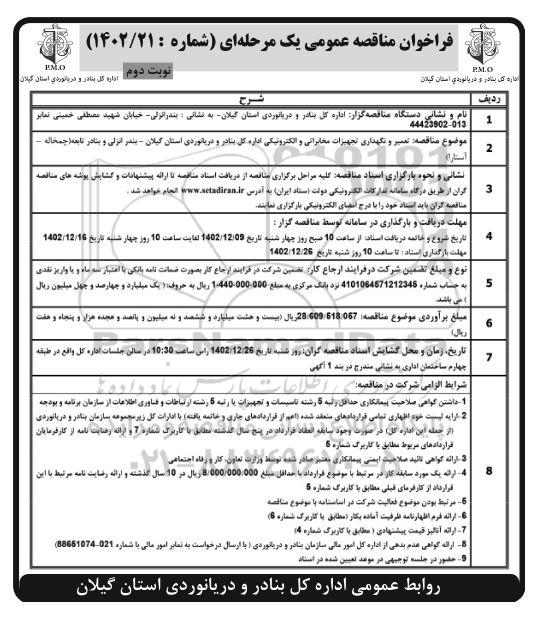 فراخوان مناقصه عمومی یک مرحله‌ای (شماره : ۱۴۰۲/۲۱)
نوبت دوم
P.M.O
اداره کل بنادر و دریانوردی استان گیلان
P.M.O
اداره کل بنادر و دریانوردی استان گیلان
ردیف
شرح
1
نام و نشانی دستگاه مناقصه‌گزار: اداره کل بنادر و دریانوردی استان گیلان- به نشانی : بندرانزلی- خیابان شهید مصطفی خمینی نمابر
44423902-013
2
موضوع مناقصه: تعمیر و نگهداری تجهیزات مخابراتی و الکترونیکی اداره کل بنادر و دریانوردی استان گیلان – بندر انزلی و بنادر تابعه(چمخاله –
آستارا)
3
نشانی و نحوه بارگزاری اسناد مناقصه: کلیه مراحل برگزاری مناقصه از دریافت اسناد مناقصه تا ارائه پیشنهادات و گشایش پوشه های مناقصه
گران از طریق درگاه سامانه تدارکات الکترونیکی دولت (ستاد ایران) به آدرس www.setadiran.ir انجام خواهد شد .
مناقصه گران باید اسناد خود را با درج امضای الکترونیکی بارگزاری نمایند.
4
مهلت دریافت و بارگذاری در سامانه توسط مناقصه گزار :
تاریخ شروع و خاتمه دریافت اسناد: از ساعت 10 صبح روز چهار شنبه تاریخ 1402/12/09 لغایت ساعت 10 روز چهار شنبه تاریخ 1402/12/16
مهلت بارگذاری اسناد : تا ساعت 10 روز شنبه تاریخ 1402/12/26
5
نوع و مبلغ تضمین شرکت درفرایند ارجاع کار: تضمین شرکت در فرایند ارجاع کار بصورت ضمانت نامه بانکی با اعتبار سه ماه و یا واریز نقدی
به حساب شماره 4101064571212345 نزد بانک مرکزی به مبلغ 1-440-000-000 ریال به حروف: ( یک میلیارد و چهارصد و چهل میلیون ریال
) می باشد.
6
مبلغ برآوردی موضوع مناقصه: 28/609/518/057ریال (بیست و هشت میلیارد و ششصد و نه میلیون و پانصد و هجده هزار و پنجاه و هفت
ریال)
7
تاریخ، زمان و محل گشایش اسناد مناقصه گران: روز شنبه تاریخ 1402/12/26 راس ساعت 10:30 در سالن جلسات اداره کل واقع در طبقه
چهارم ساختمان اداری به نشانی مندرج در بند 1 آگهی
8
شرایط الزامی شرکت در مناقصه:
1-داشتن گواهی صلاحیت پیمانکاری حداقل رتبه 5 رشته تاسیسات و تجهیزات یا رتبه 5 رشته ارتباطات و فناوری اطلاعات از سازمان برنامه و بودجه
2-ارایه لیست خود اظهاری تمامی قراردادهای منعقد شده (اعم از قراردادهای جاری و خاتمه یافته) با ادارات کل زیرمجموعه سازمان بنادر و دریانوردی
(از جمله این اداره کل) در صورت وجود سابقه انعقاد قرارداد در پنج سال گذشته مطابق با کاربرگ شماره 7 و ارائه رضایت نامه از کارفرمایان
قراردادهای مربوط مطابق با کاربرگ شماره 5
3-ارائه گواهی تائید صلاحیت ایمنی پیمانکاری معتبر صادر شده توسط وزارت تعاون، کار و رفاه اجتماعی
4- ارائه یک مورد سابقه کار در مرتبط با موضوع قرارداد با حداقل مبلغ 8/000/000/000 ریال در 10 سال گذشته و ارائه رضایت نامه مرتبط با این
قرارداد از کارفرمای قبلی مطابق با کاربرگ شماره 5
5- مرتبط بودن موضوع فعالیت شرکت در اساسنامه با موضوع مناقصه
6- ارائه فرم اظهارنامه ظرفیت آماده بکار (مطابق با کاربرگ شماره 6)
7- ارائه آنالیز قیمت پیشنهادی ( مطابق با کاربرگ شماره 4)
8- ارائه گواهی عدم بدهی از اداره کل امور مالی سازمان بنادر و دریانوردی ( با ارسال درخواست به نمابر امور مالی با شماره 021-88651074)
9- حضور در جلسه توجیهی در موعد تعیین شده در اسناد
روابط عمومی اداره کل بنادر و دریانوردی استان گیلان